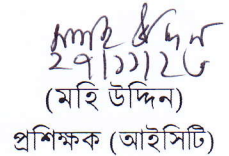 মহি উদ্দিন
২৭/১১/২৩
(মহি উদ্দিন)
প্রশিক্ষক (আইসিটি)